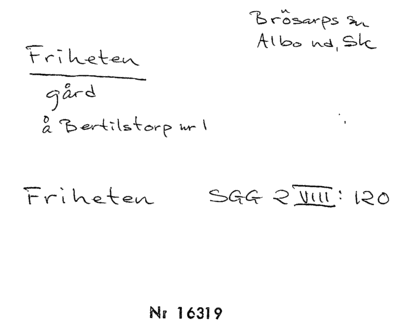 Brösarps sn
Albo hd, Sk
Friheten
gård
å Bertilstorp nr 1
Friheten SGG 2 VIII: 120
Nr 16319